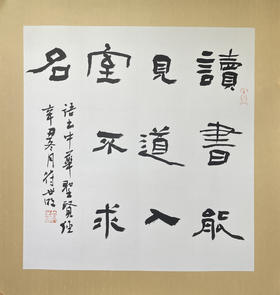 讀書能
見道入
室不求
名
語出中華聖賢經
辛丑冬月符世明